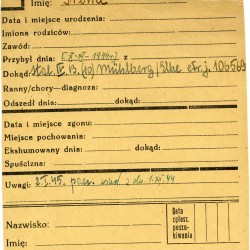 Imię:
Data i miejsce urodzenia:
Imiona rodziców:
Zawód:
Przybył dnia: [8-XI-1944r]z
Dokąd: Stal. IV. B. (10) Mühlberg/Elbe etr. j. 106569
Ranny/chory—diagnoza:
Odszedł dnia: dokąd:
Data i miejsce zgonu:
Miejsce pochowania:
Ekshumowany dnia: dokąd:
Spuścizna:
Uwagi: 2.I.45. wiad. z dn. 1.XI.44
Nazwisko:
Imię:
Data
zgłosz.
poszu-
kiwania